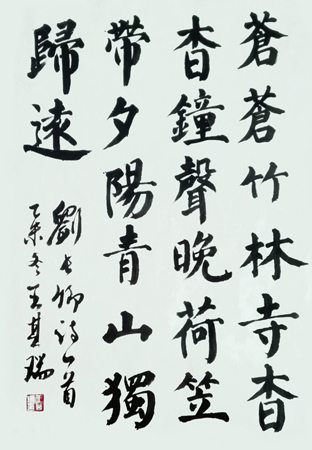 蒼蒼竹林寺杳
杳鐘聲晚荷笠
帶夕陽青山獨
歸遠
劉長卿詩一首
乙未冬王瑞